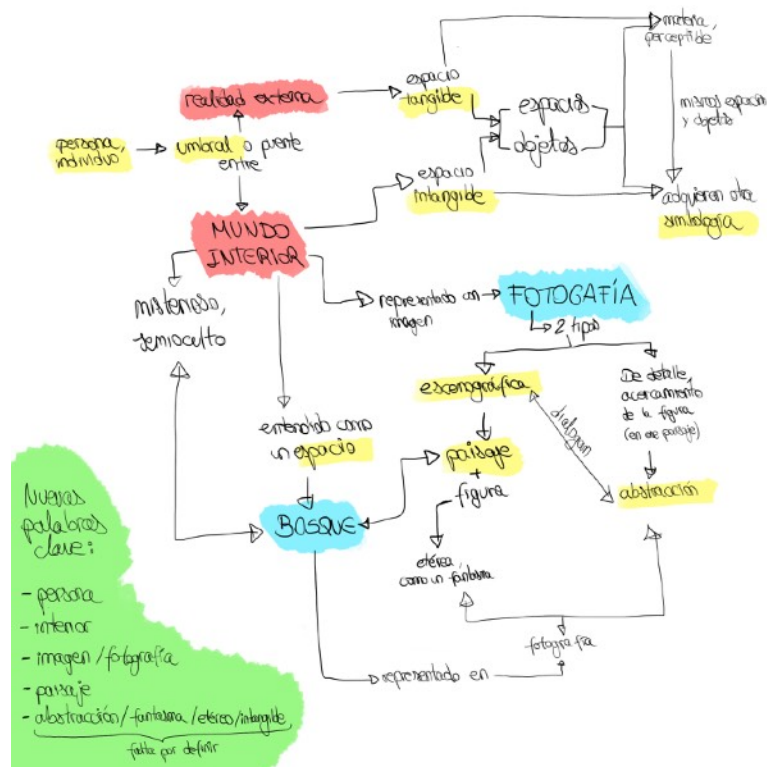 materia,
perceptible
espacio
tangible
realidad externa
espacios
objetos
mismos espacios
y objetos
persona,
individuo
umbral o puente
entre
espacio
intangible
adquieren otra
simbología
MUNDO
INTERIOR
misterioso,
semioculto
representado con
imagen
FOTOGRAFÍA
2 tipos
escenográfica
De detalle,
acercamiento
de la figura
(en ese paisaje)
dialogan
entendido como
un espacio
paisaje
+
figura
abstracción
BOSQUE
etérea,
como un fantasma
fotografía
representado en
Nuevas
palabras
clave:
- persona
- interior
- imagen/fotografía
- paisaje
- abstracción/fantasma/etéreo/intangible
falta por definir